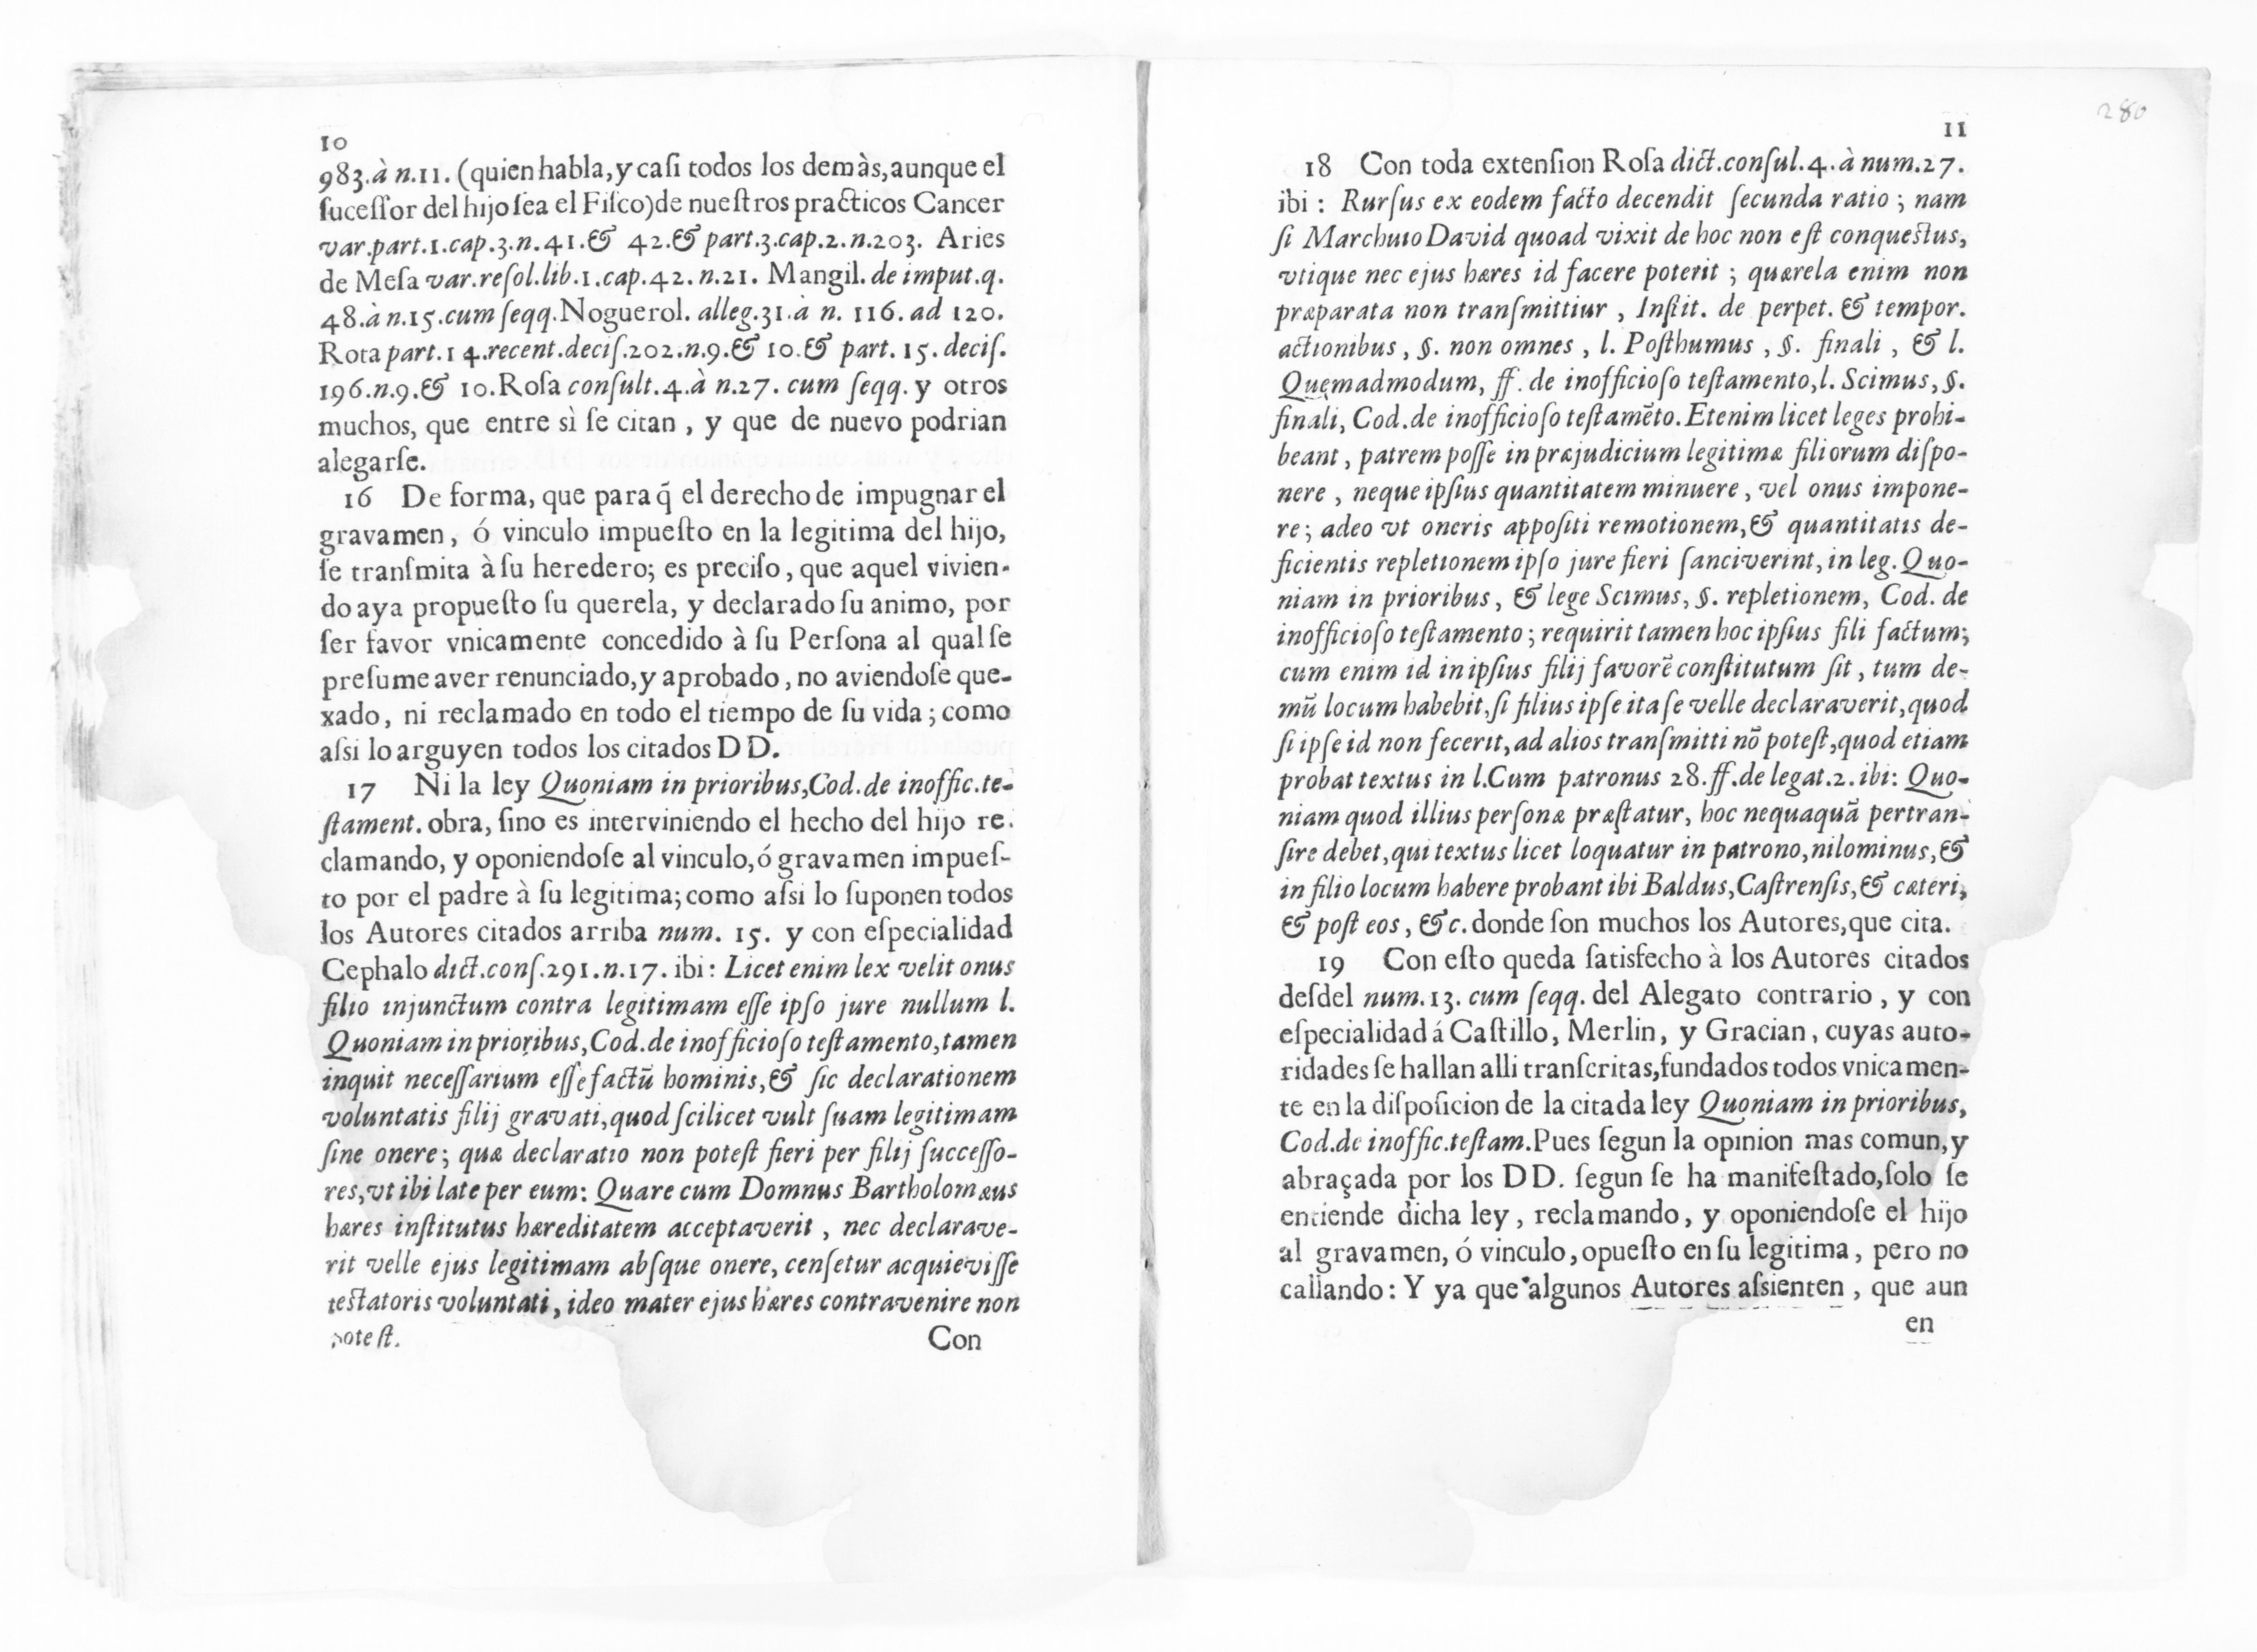 10
983.à n.11. (quien habla, y caſi todos los demàs, aunque el
ſuceſſor del hijo ſea el Fiſco) de nueſtros practicos Cancer
var.part.1.cap.3.n.41.& 42.& part.3.cap.2.n.203. Aries
de Meſa var.reſol.lib.1.cap.42.n.21. Mangil. de imput.q.
48.à n.15.cum ſeqq.Noguerol. alleg.31.à n. 116. ad 120.
Rota part.14.recent.deciſ.202.n.9.& 10.& part. 15. deciſ.
196.n.9.& 10.Roſa conſult.4.à n.27. cum ſeqq. y otros
muchos, que entre sì ſe citan, y que de nuevo podrian
alegarſe.
16 De forma, que para q̃ el derecho de impugnar el
gravamen, ó vinculo impueſto en la legitima del hijo,
ſe tranſmita à ſu heredero; es preciſo, que aquel vivien-
do aya propueſto ſu querela, y declarado ſu animo, por
ſer favor vnicamente concedido à ſu Perſona al qual ſe
preſume aver renunciado, y aprobado, no aviendoſe que-
xado, ni reclamado en todo el tiempo de ſu vida; como
aſsi lo arguyen todos los citados DD.
17 Ni la ley Quoniam in prioribus, Cod. de inoffic.te-
ſtament. obra, ſino es interviniendo el hecho del hijo re-
clamando, y oponiendoſe al vinculo, ó gravamen impueſ-
to por el padre à ſu legitima; como aſsi lo ſuponen todos
los Autores citados arriba num. 15. y con eſpecialidad
Cephalo dict.conſ.291.n.17. ibi: Licet enim lex velit onus
filio injunctum contra legitimam eſſe ipſo jure nullum l.
Quoniam in prioribus, Cod. de inofficioſo teſtamento, tamen
inquit neceſſarium eſſe factũ hominis, & ſic declarationem
voluntatis filij gravati, quod ſcilicet vult ſuam legitimam
ſine onere; quæ declaratio non poteſt fieri per filij ſucceſſo-
res, vt ibi late per eum: Quare cum Domnus Bartholomæus
hæres inſtitutus hæreditatem acceptaverit, nec declarave-
rit velle ejus legitimam abſque onere, cenſetur acquieviſſe
teſtatoris voluntati, ideo mater ejus hæres contravenire non
poteſt. Con
280
11
18 Con toda extenſion Roſa dict.conſul.4.à num.27.
ibi: Rurſus ex eodem facto decendit ſecunda ratio; nam
ſi Marchuto David quoad vixit de hoc non eſt conqueſtus,
vtique nec ejus hæres id facere poterit; quærela enim non
præparata non tranſmittiur, Inſtit. de perpet. & tempor.
actionibus, §. non omnes, l. Poſthumus, §. finali, & l.
Quemadmodum, ff. de inofficioſo teſtamento, l. Scimus, §.
finali, Cod. de inofficioſo teſtamẽto. Etenim licet leges prohi-
beant, patrem poſſe in præjudicium legitimæ filiorum diſpo-
nere, neque ipſius quantitatem minuere, vel onus impone-
re; adeo vt oneris appoſiti remotionem, & quantitatis de-
ficientis repletionem ipſo jure fieri ſanciverint, in leg. Quo-
niam in prioribus, & lege Scimus, §. repletionem, Cod. de
inofficioſo teſtamento; requirit tamen hoc ipſius fili factum;
cum enim id in ipſius filij favorẽ conſtitutum ſit, tum de-
mũ locum habebit, ſi filius ipſe ita ſe velle declaraverit, quod
ſi ipſe id non fecerit, ad alios tranſmitti nõ poteſt, quod etiam
probat textus in l.Cum patronus 28. ff.de legat.2. ibi: Quo-
niam quod illius perſonæ præſtatur, hoc nequaquã pertran-
ſire debet, qui textus licet loquatur in patrono, nilominus, &
in filio locum habere probant ibi Baldus, Caſtrenſis, & cæteri,
& poſt eos, &c. donde ſon muchos los Autores, que cita.
19 Con eſto queda ſatisfecho à los Autores citados
deſdel num.13. cum ſeqq. del Alegato contrario, y con
eſpecialidad á Caſtillo, Merlin, y Gracian, cuyas auto-
ridades ſe hallan alli tranſcritas, fundados todos vnicamen-
te en la diſpoſicion de la citada ley Quoniam in prioribus,
Cod.de inoffic.teſtam. Pues ſegun la opinion mas comun, y
abraçada por los DD. ſegun ſe ha manifeſtado, ſolo ſe
entiende dicha ley, reclamando, y oponiendoſe el hijo
al gravamen, ó vinculo, opueſto en ſu legitima, pero no
callando: Y ya que algunos Autores aſsienten, que aun
en